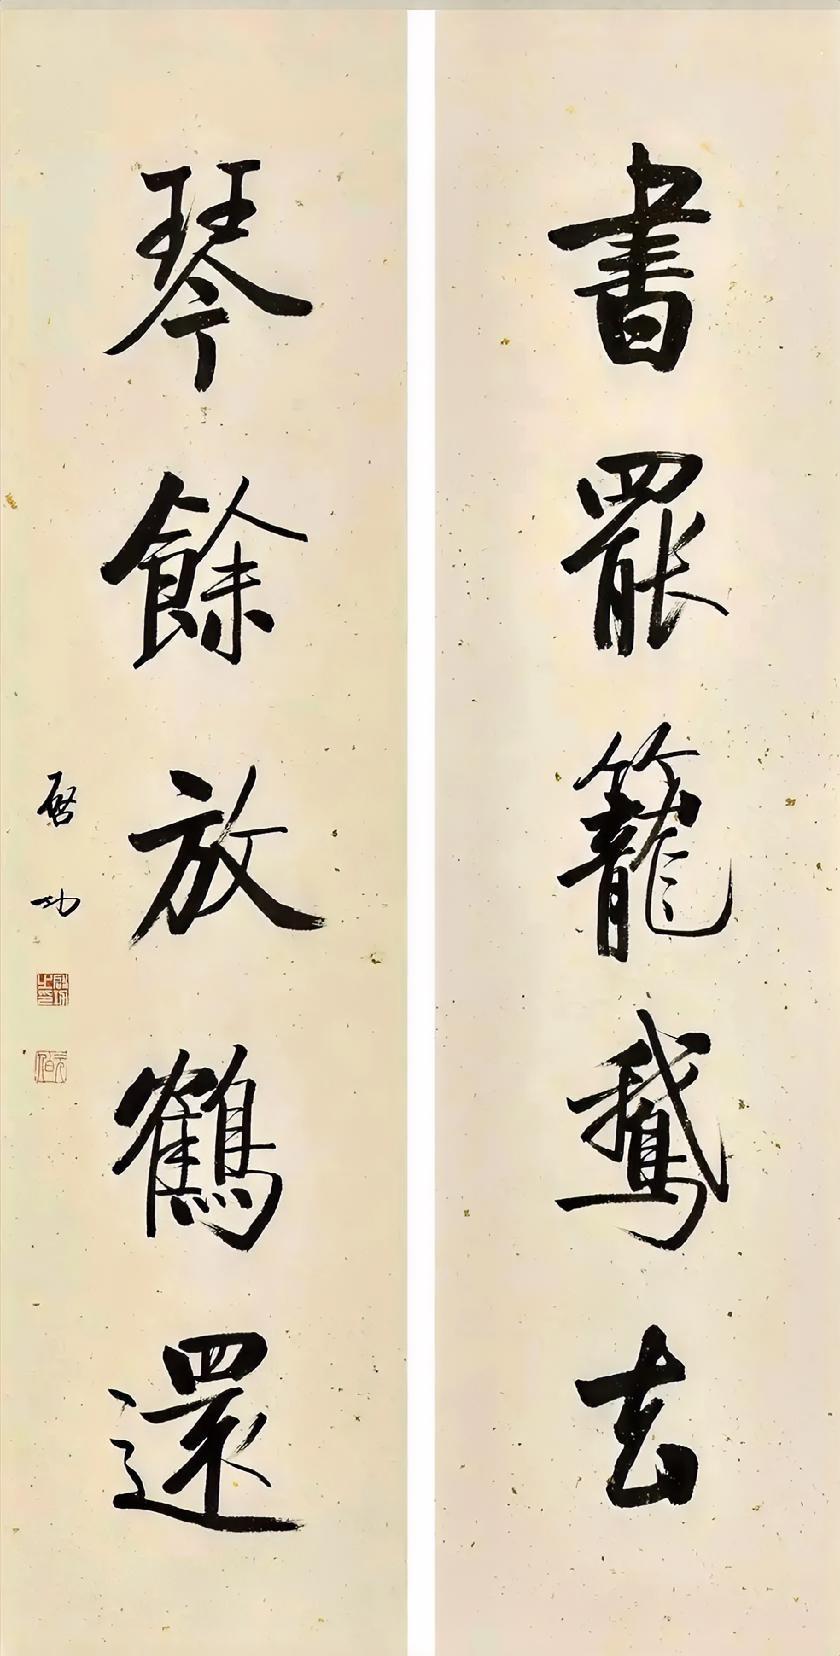 書罷籠鵝去
琴餘放鶴還
啓功